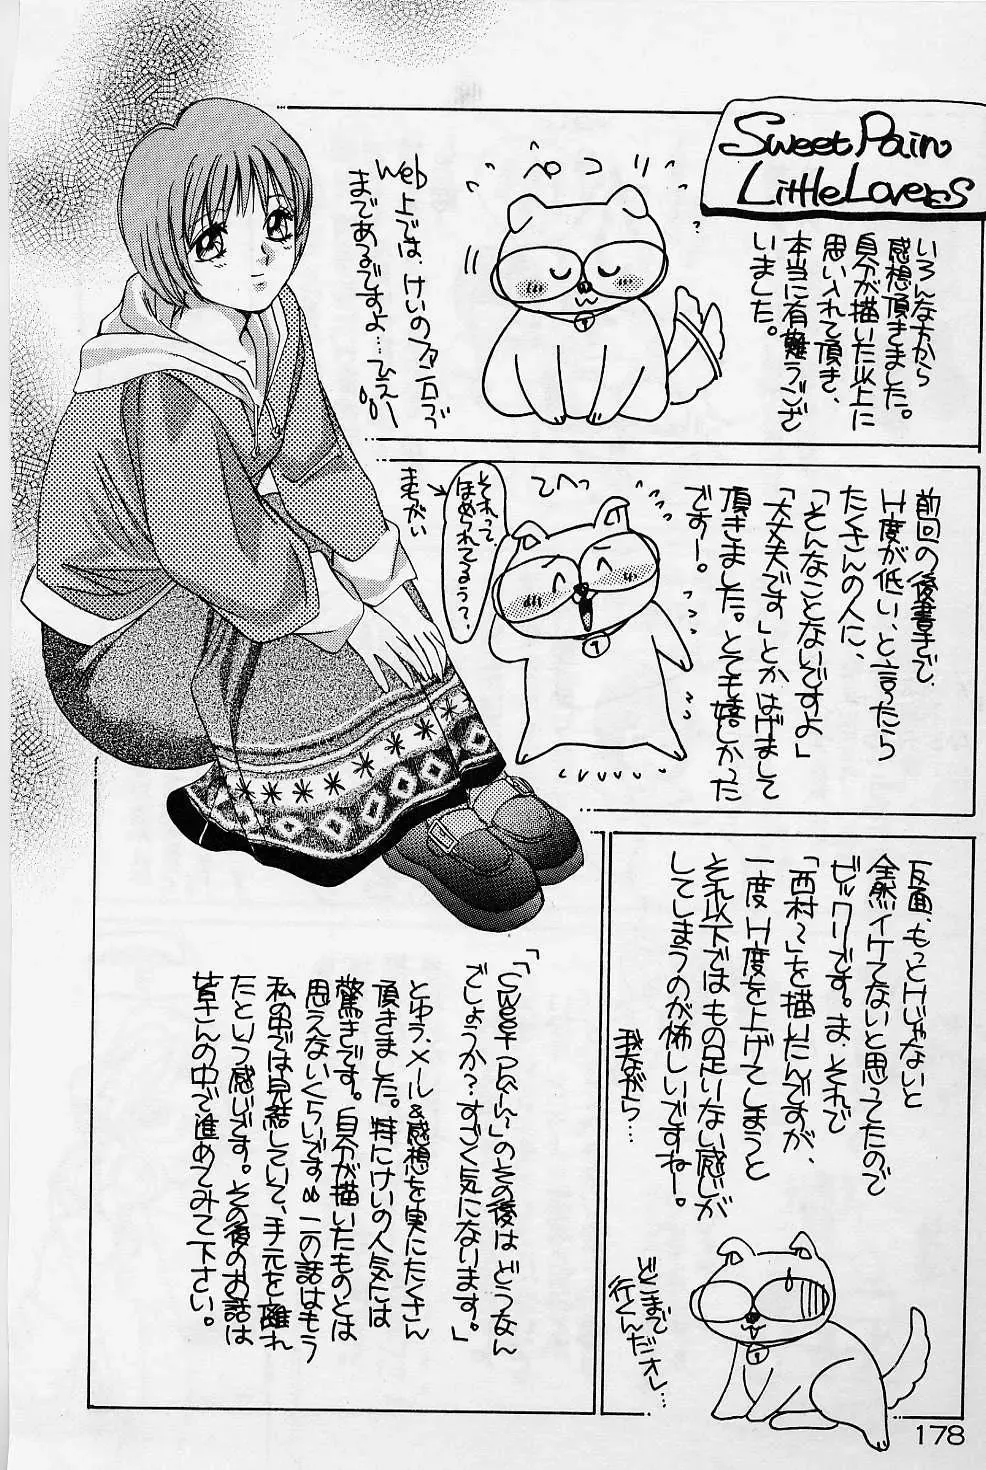 Sweet Pain
Little Lovers
いろんな方から
感想頂きました。
自分が描いた以上に
思い入れて頂き、
本当に有難うござ
いました。
ペコリ
Web上では、けいのファン
まであるですよ…ひえー
前回の後書きで、
H度が低い、と言ったら
たくさんの人に、
「そんなことないですよ」
「大丈夫です」とかはげまして
頂きました。とても嬉しかった
ですー。
てへっ
それって、
ほめられてるぅ？
まちがい
反面、もっとHじゃないと
全然イケてないと思ってたので
ビックリです。ま、それで
「西村〜」を描いたんですが、
一度H度を上げてしまうと
それ以下ではもの足りない感じが
してしまうのが怖しいですねー。
我ながら…
どこまで
行くんだオレ…
「「Sweet Pain〜」のその後はどうなん
でしょうか？すごく気になります。」
とゆう、メール&感想を実にたくさん
頂きました。特にけいの人気には
驚きです。自分が描いたものとは
思えないくらいです。この話はもう
私の中では完結していて、手元を離れ
たという感じです。その後のお話は
皆さんの中で進めてみて下さい。
178